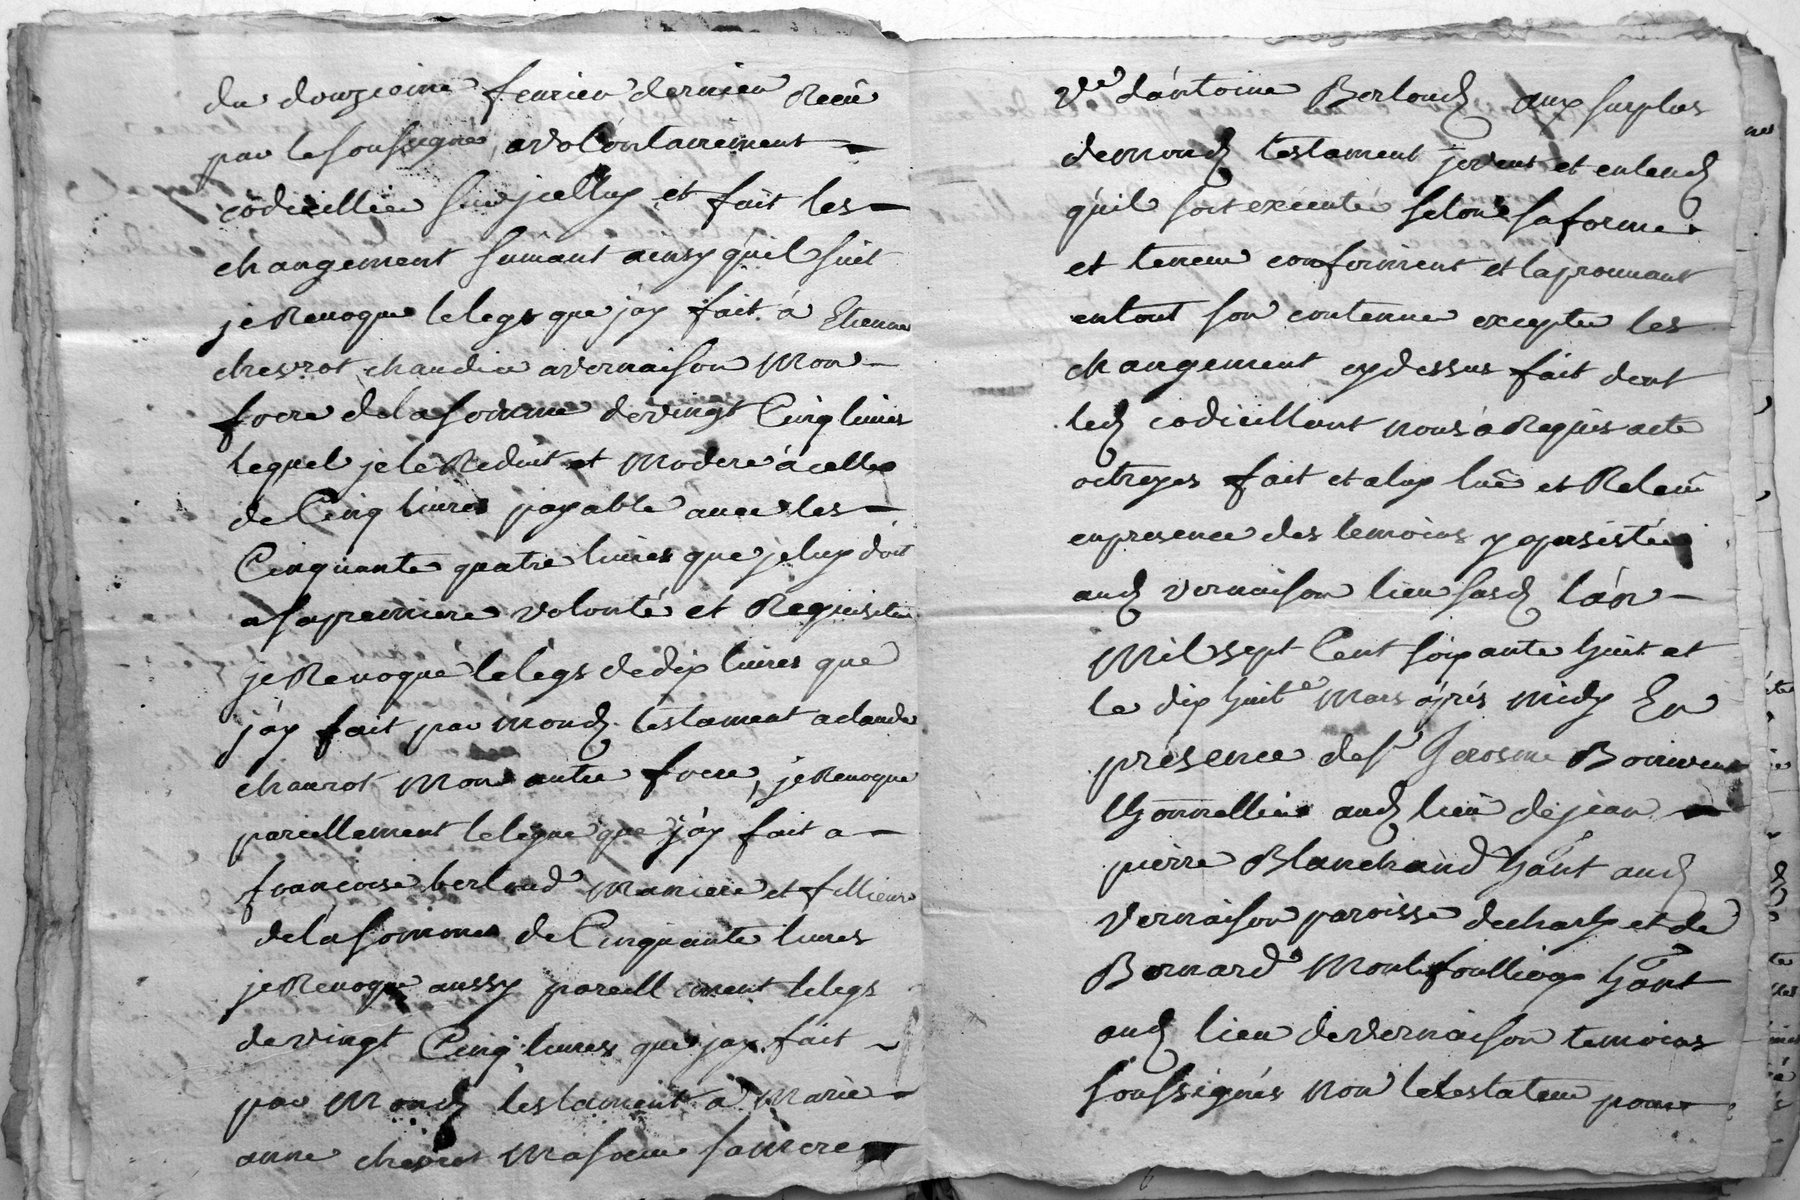 du douzieme feurier dernier Receu
par le soussigné, a volontairement
codicillier sur jcelluy et fait les
changement suiuant ainsy qu'il suit
je Reuoque le legs que j'ay fait à Etienne
chevrot chandier a vernaison Mon
frere de la somme de vingt Cinq liures
lequel je le Reduit et Modere a celle
de Cinq liures payable auec les
Cinquante quatre liures que je luy doit
a sa premiere volonté et Requisition
je Reuoque le legs de dix liures que
j'ay fait par mond. testament a claude
chaurot Mon autre frere, je Reuoque
pareillement le legue que j'ay fait a
francoise berloud Ma niece et fillieule
de la somme de Cinquante liures
je Reuoque aussy pareillement le legs
de vingt Cinq liures que j'ay fait
par Mond. testament à Marie
anne chevrot Ma soeur sa mere
Ve. d'antoine Berloud, aux surplus
de mond. testament je veux et entend
qu'il soit executé selon sa forme
et teneur confirment et laprouuant
en tout son contenue excepte les
changement cy dessus fait dont
led. codicillant nous a Requis acte
octroyes fait et a luy lüe et Releüe
en presence des temoins y apres
aud. vernaison lieu susd. l'an
Mil sept Cent soixante huit et
le dix huite. Mars aprés midy En
présence de sr. Jerosme
aud. lieu de jean
pierre Blanchand hant aud.
vernaison paroisse de charly et de
Bernard Montfoullioux hant
aud. lieu de vernaison temoins
soussignés non le testateur pour